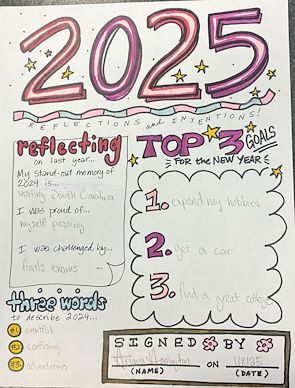 2025
REFLECTIONS and INTENTIONS!
reflecting
on last year...
My stand-out memory of
2024 is...
visiting South Carolina
I was proud of...
myself passing
I was challenged by...
finals exams
three words
to describe 2024...
#1 eventful
#2 confusing
#3 adventerous
TOP 3
GOALS
FOR the NEW YEAR
1. expand my hobbies
2. get a car
3. find a great college
SIGNED BY
Harrington ON 1/8/25
(NAME) (DATE)